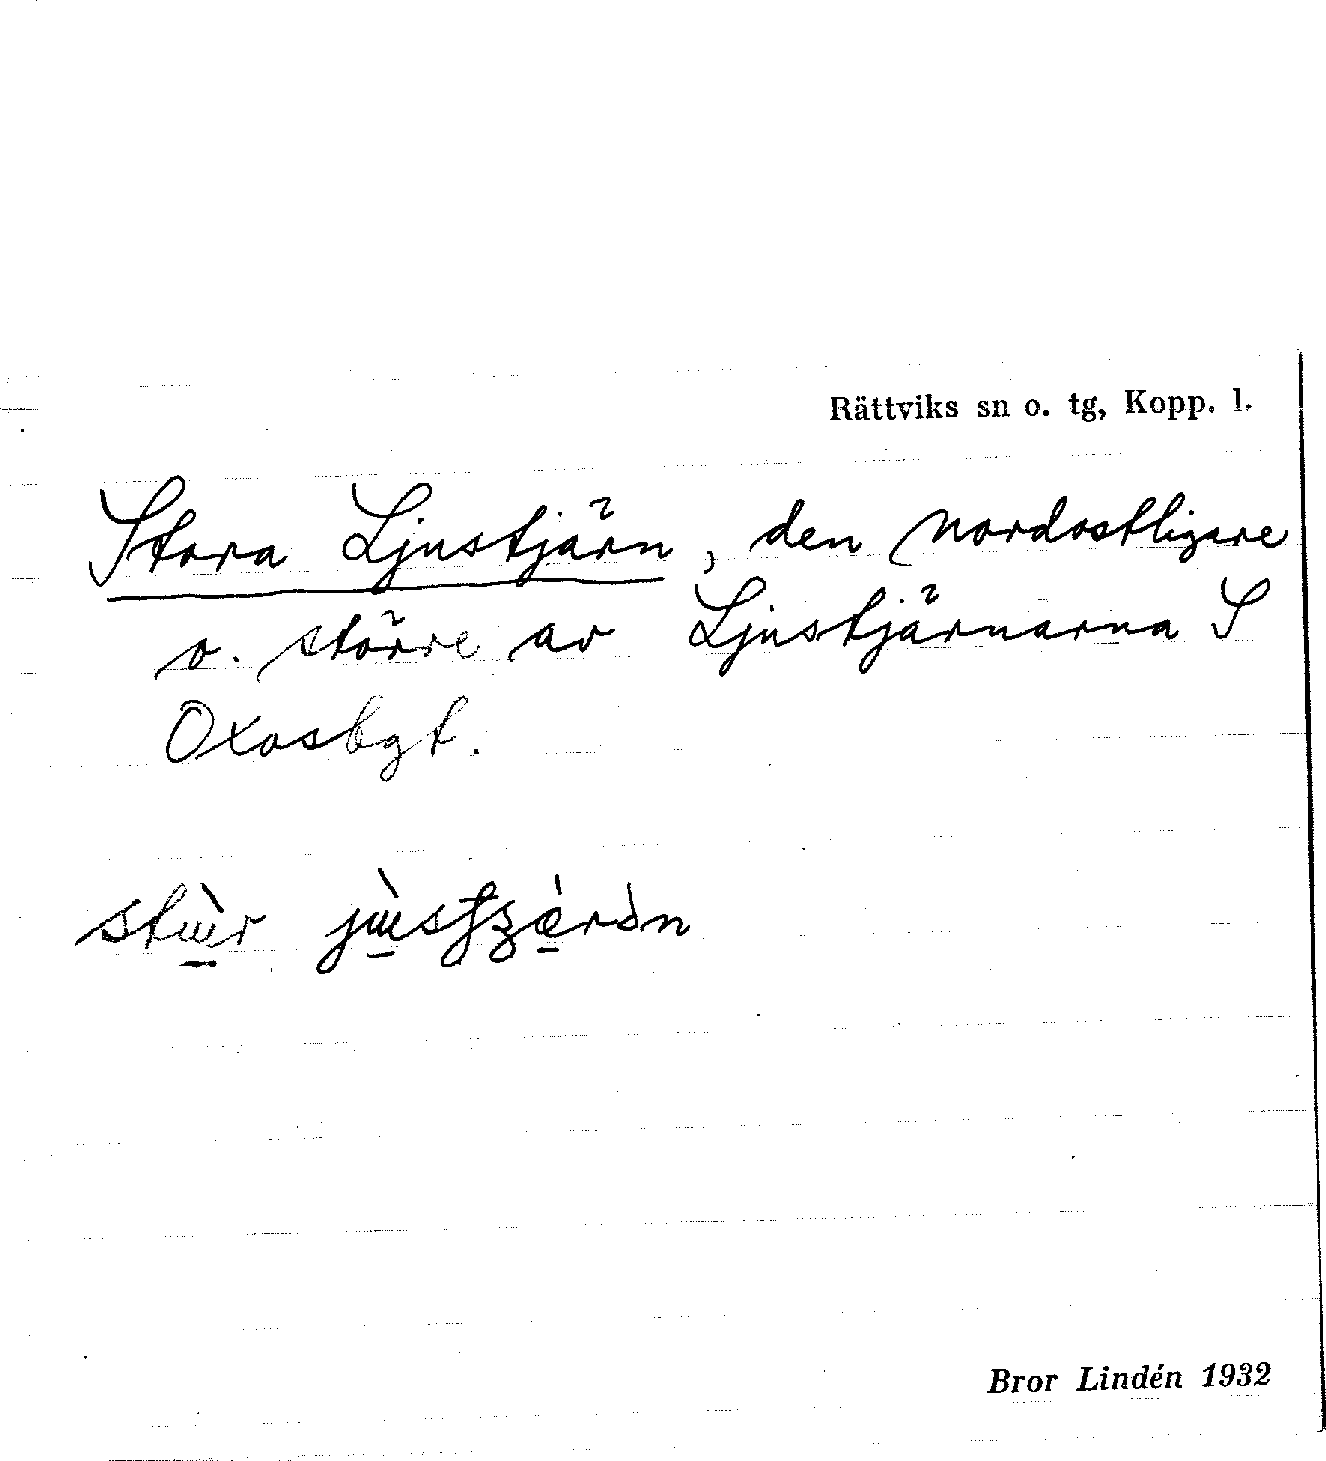 Rättviks sn o. tg, Kopp. l.
Stora Ljustjärn, den nordostligare
o. större av Ljustjärnarna S
Oxåsbgt.
Bror Lindén 1932